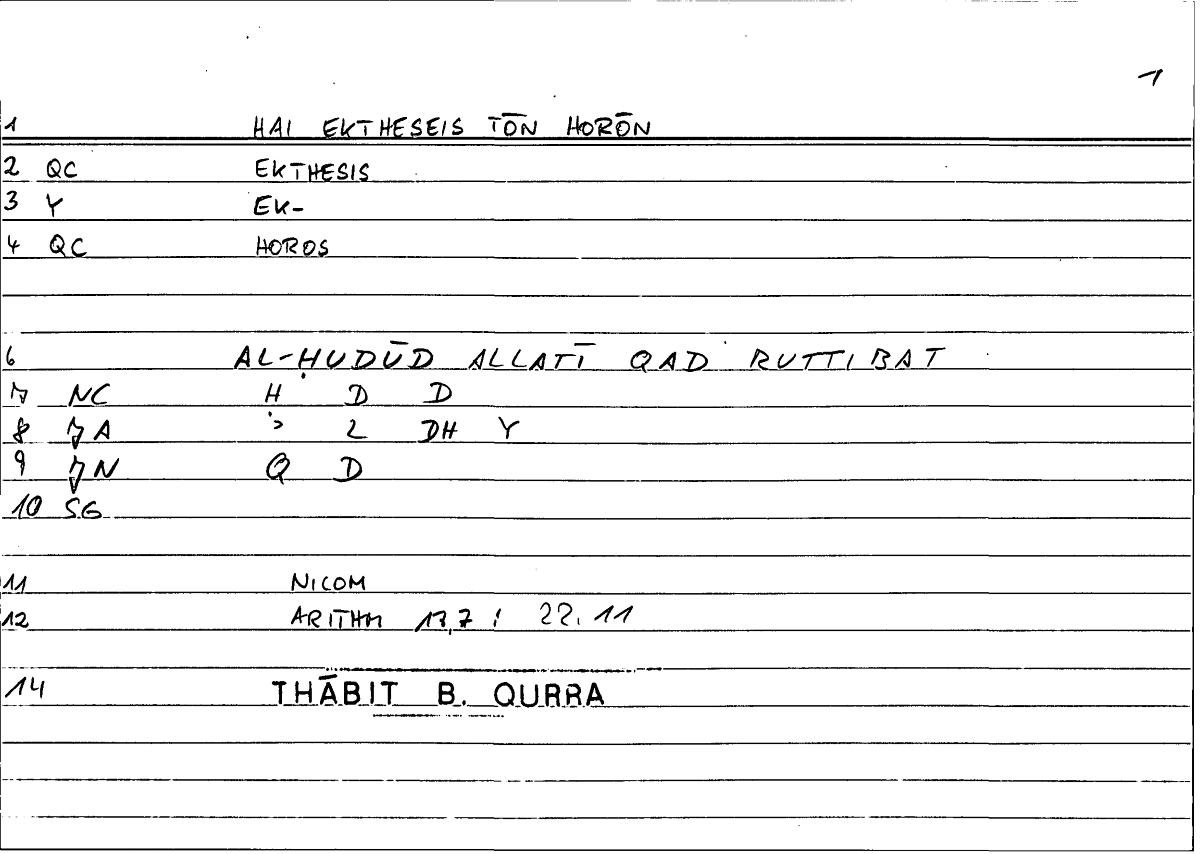 1
1 HAI EKTHESEIS TŌN HORŌN
2 QC EKTHESIS
3 Y EK-
4 QC HOROS
6 AL-ḤUDŪD ALLATĪ QAD RUTTIBAT
7 NC Ḥ D D
8 JA ʾ L DH Y
9 JN Q D
10 SG
11 NICOM
12 ARITHM 13,7 : 22,11
14 THĀBIT B. QURRA